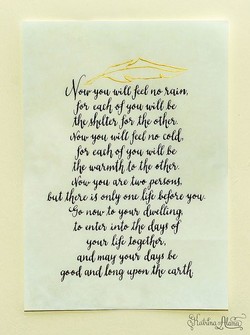 Now you will feel no rain,
for each of you will be
the shelter for the other.
Now you will feel no cold,
for each of you will be
the warmth to the other.
Now you are two persons,
but there is only one life before you.
Go now to your dwelling,
to enter into the days of
your life together,
and may your days be
good and long upon the earth.